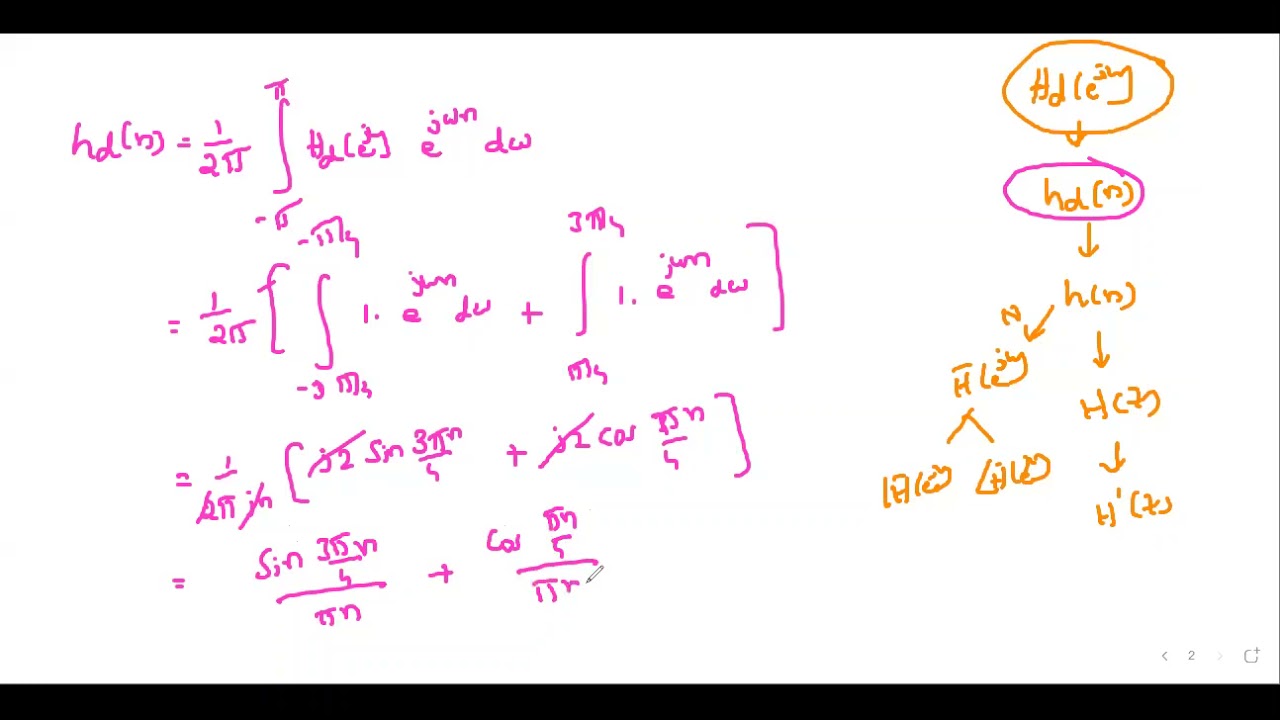 h_d(n) = 1/2π ∫_{-π}^{π} H_d[e^{jω}] e^{jωn} dω
= 1/2π [ ∫_{-3π/4}^{-π/4} 1. e^{jωn} dω + ∫_{π/4}^{3π/4} 1. e^{jωn} dω ]
= 1/2πjn [ j2 sin 3πn/4 + j2 cos πn/4 ]
= sin 3πn/4 / πn + cos πn/4 / πn
H_d[e^{jω}]
h_d(n)
h(n)
N
H̄(e^{jω})
H(z)
|H̄(e^{jω})| ∠H̄(e^{jω})
H'(z)
2